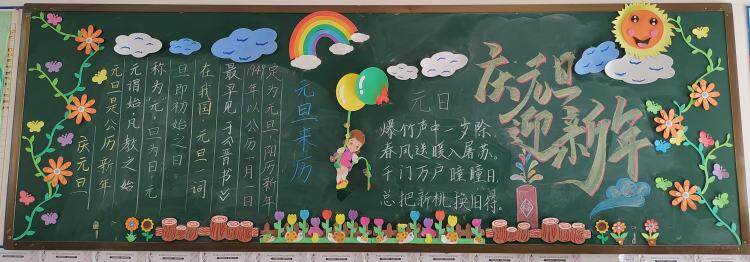 庆元旦
元旦是公历新年
元谓始,凡数之始
称为“元”,旦为日,元
旦即初始之日。
在我国,元旦一词
最早见于《晋书》
1949年以公历一月一日
定为元旦(阳历新年
元旦来历
元日
爆竹声中一岁除,
春风送暖入屠苏。
千门万户瞳瞳日,
总把新桃换旧符。
庆元旦
迎新年